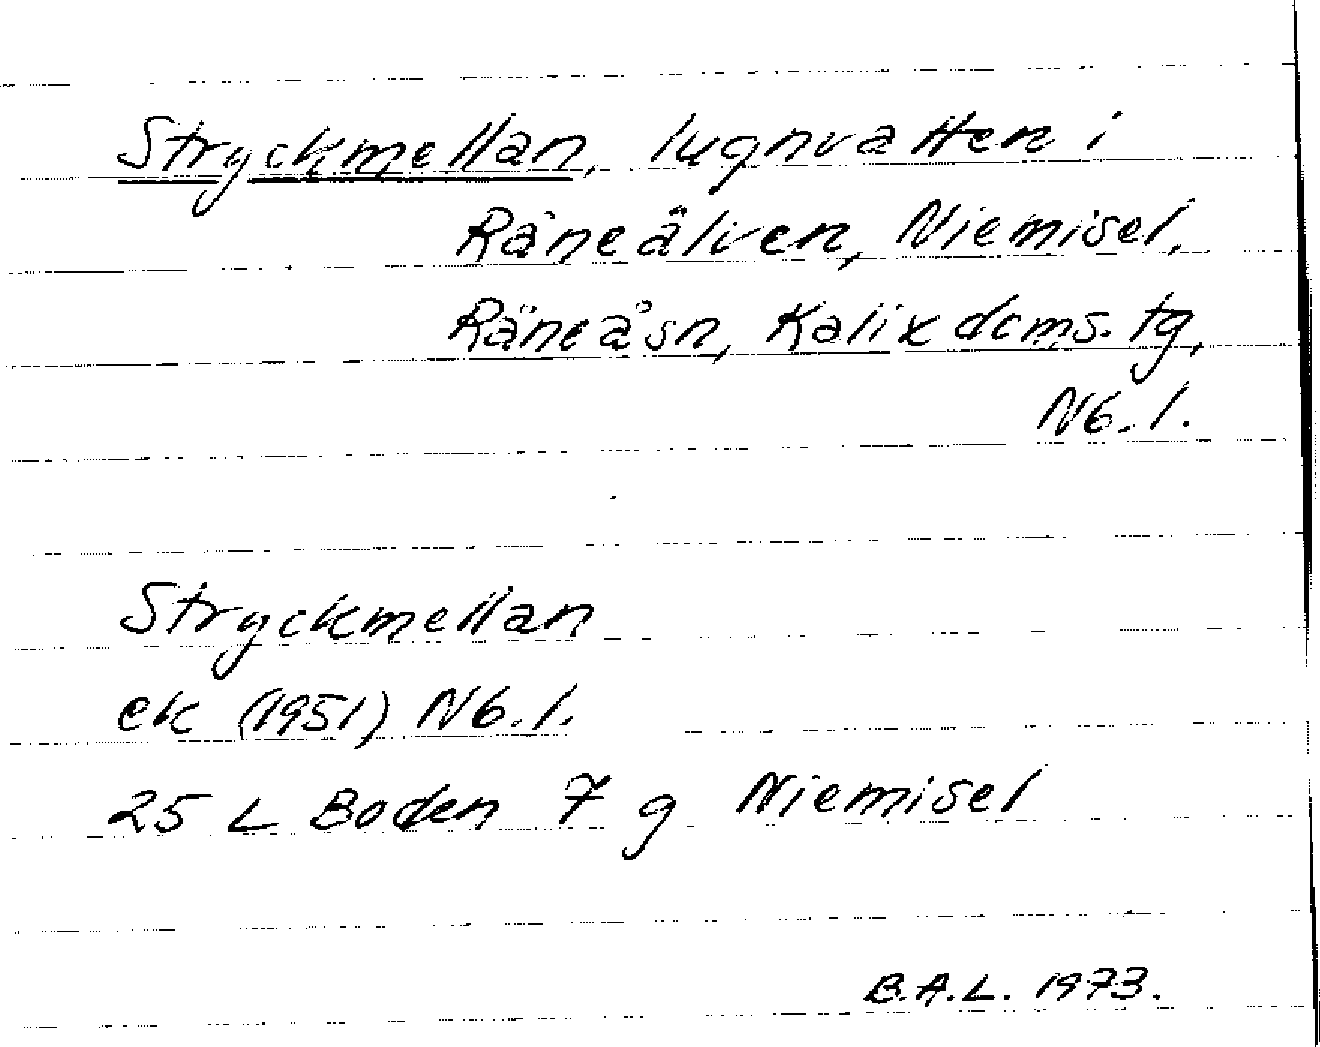 Stryckmellan, lugnvatten i
Råneälven, Niemisel,
Råneå sn, Kalix doms. tg,
Nb. l.
Stryckmellan
ek (1951) Nb. l.
25 L Boden 7 g Niemisel
B.A.L. 1973.